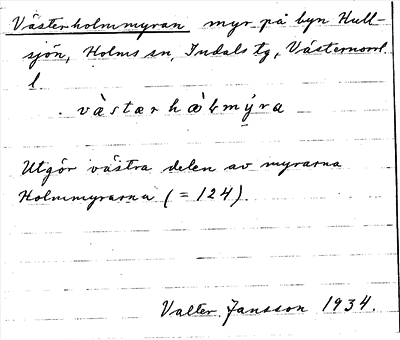 Västerholmmyran myr på byn Hull-
sjön, Holms sn, Indals tg, Västernorrl.
l
Utgör västra delen av myrarna
Holmmyrarna (= 124).
Valter Jansson 1934.